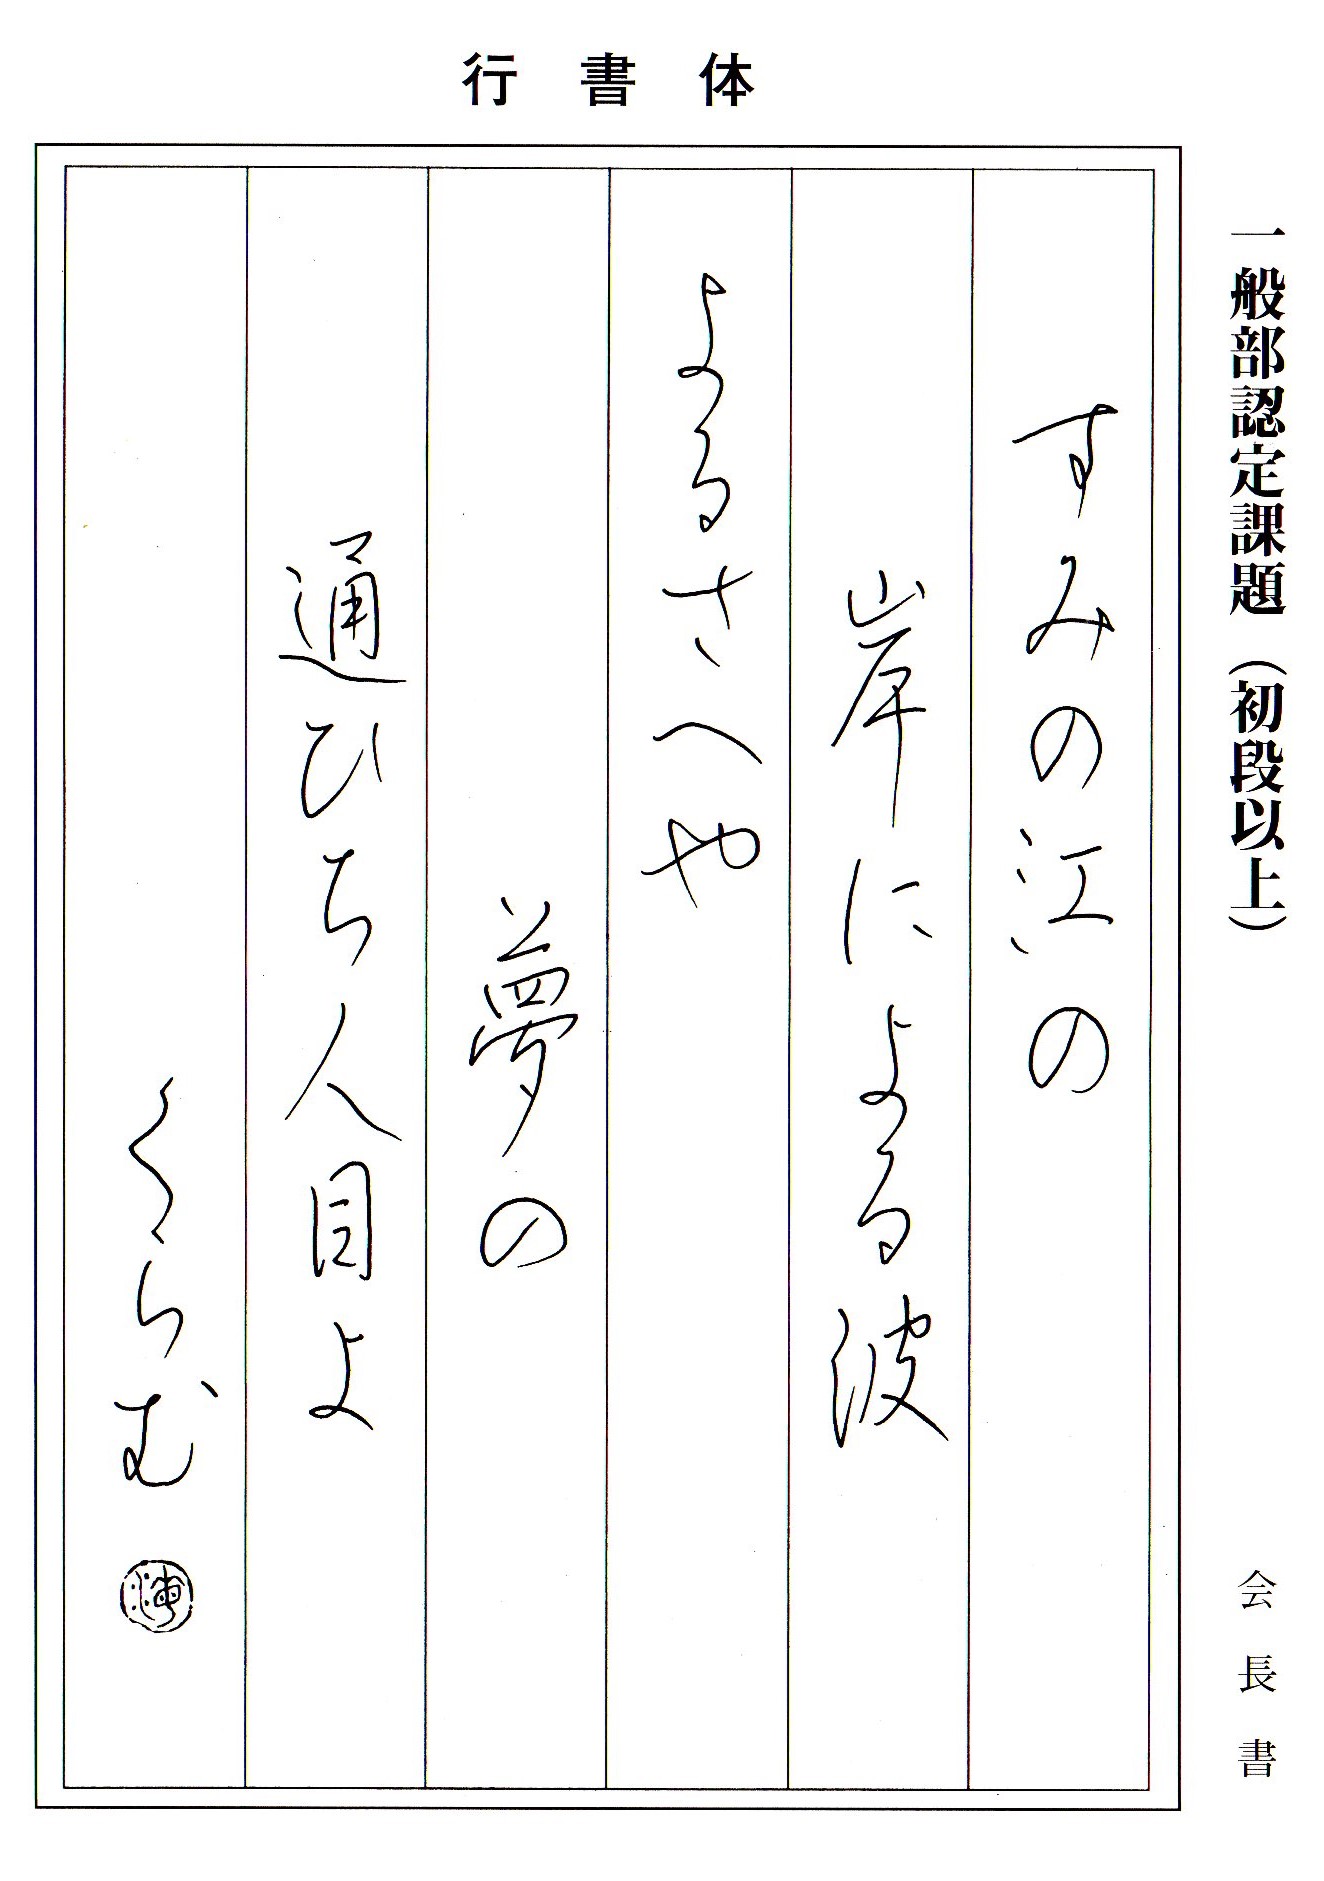 行書体
一般部認定課題（初段以上）
会長書
すみの江の
岸による波
よるさへや
夢の
通ひち人目よ
くらむ